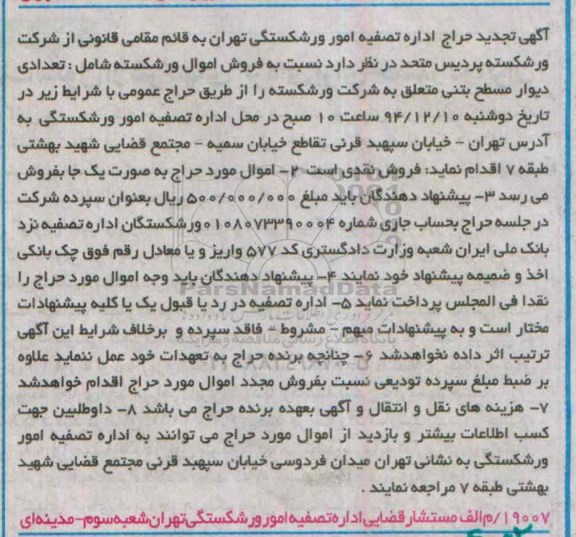 آگهی تجدید حراج اداره تصفیه امور ورشکستگی تهران به قائم مقامی قانونی از شرکت
ورشکسته پردیس متحد در نظر دارد نسبت به فروش اموال ورشکسته شامل : تعدادی
دیوار مسطح بتنی متعلق به شرکت ورشکسته را از طریق حراج عمومی با شرایط زیر در
تاریخ دوشنبه ۹۴/۱۲/۱۰ ساعت ۱۰ صبح در محل اداره تصفیه امور ورشکستگی به
آدرس تهران - خیابان سپهبد قرنی تقاطع خیابان سمیه - مجتمع قضایی شهید بهشتی
طبقه ۷ اقدام نماید: فروش نقدی است ۲- اموال مورد حراج به صورت یک جا بفروش
می رسد ۳- پیشنهاد دهندگان باید مبلغ ۵۰۰/۰۰۰/۰۰۰ ریال بعنوان سپرده شرکت
در جلسه حراج بحساب جاری شماره ۰۱۰۸۰۷۳۳۹۰۰۰۴ ورشکستگان اداره تصفیه نزد
بانک ملی ایران شعبه وزارت دادگستری کد ۵۷۷ واریز و یا معادل رقم فوق چک بانکی
اخذ و ضمیمه پیشنهاد خود نمایند ۴- پیشنهاد دهندگان باید وجه اموال مورد حراج را
نقدا فی المجلس پرداخت نماید ۵- اداره تصفیه در رد یا قبول یک یا کلیه پیشنهادات
مختار است و به پیشنهادات مبهم - مشروط - فاقد سپرده و برخلاف شرایط این آگهی
ترتیب اثر داده نخواهدشد ۶- چنانچه برنده حراج به تعهدات خود عمل ننماید علاوه
بر ضبط مبلغ سپرده تودیعی نسبت بفروش مجدد اموال مورد حراج اقدام خواهدشد
۷- هزینه های نقل و انتقال و آگهی بعهده برنده حراج می باشد ۸- داوطلبین جهت
کسب اطلاعات بیشتر و بازدید از اموال مورد حراج می توانند به اداره تصفیه امور
ورشکستگی به نشانی تهران میدان فردوسی خیابان سپهبد قرنی مجتمع قضایی شهید
بهشتی طبقه ۷ مراجعه نمایند .
۱۹۰۰۷/م الف مستشار قضایی اداره تصفیه امور ورشکستگی تهران شعبه سوم - مدینه ای
ParsNamadData